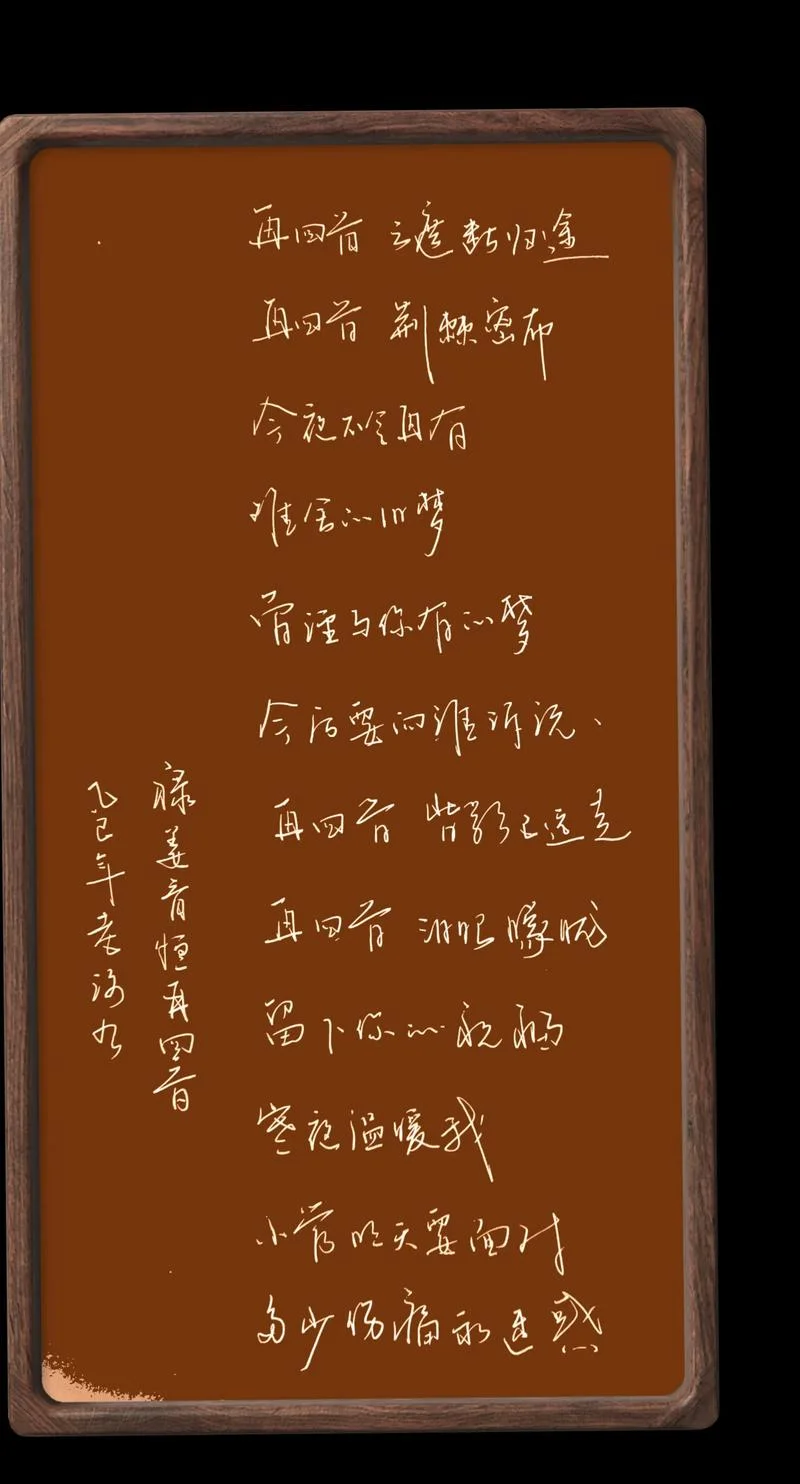 再回首 云遮断归途
再回首 荆棘密布
今夜不会再有
难舍的旧梦
曾经与你有的梦
今后要向谁诉说、
再回首 背影已远走
再回首 泪眼朦胧
留下你的祝福
寒夜温暖我
不管明天要面对
多少伤痛和迷惑
录姜育恒再回首
乙巳年老海九